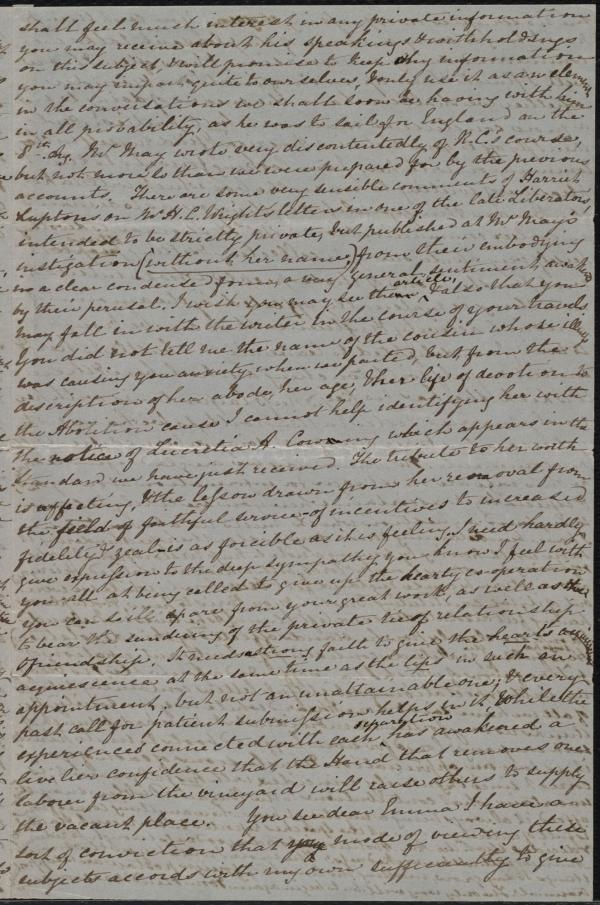 shall feel much interest in any private information
you may receive about his speakings & withholdings
on this subject, & will promise to keep any information
you may impart quite to ourselves, & only use it as an element
in the conversations we shall soon be having with him
in all probability, as he was to sail for England on the
8th. Mr. May wrote very discontentedly of R. C.'s course,
but not more so than we were prepared for by the previous
accounts. There are some very sensible comments of Harriet
Luptons on Mr. H. C. Wright's letter in one of the late Liberators,
intended to be strictly private, but published at Mr May's
instigation (without her name) from their embodying
in a clear condensed form, a very general sentiment awakened
by their perusal. I wish you may see the article, & also that you
may fall in with the writer in the course of your travels
You did not tell me the name of the cousin whose illness
was causing you anxiety when we parted, but from the
description of her abode, her age, & her life of devotion to
the Abolition cause I cannot help identifying her with
the notice of Lucretia A. Cowing which appears in the
Standard we have just received. The tribute to her worth
is affecting, & the lesson drawn from her removal from
the field of faithful service of incentives to increased
fidelity & zeal is as forcible as it is feeling. I need hardly
give expression to the deep sympathy you know I feel with
you all at being called to give up the hearty co-operation
you can so ill spare from your great work, as well as thus
to bear the sundering of the private tie of relationship
& friendship. It needs a strong faith to give the hearts
acquiescence at the same time as the lips in such an
appointment, but not an unattainable one; & every
past call for patient submission helps in it, while the
experiences connected with each separation has awakened a
livelier confidence that the Hand that removes one
laborer from the vineyard will raise others to supply
the vacant place. You see dear Emma I have a
sort of conviction that your mode of viewing these
subjects accords with my own sufficiently to give